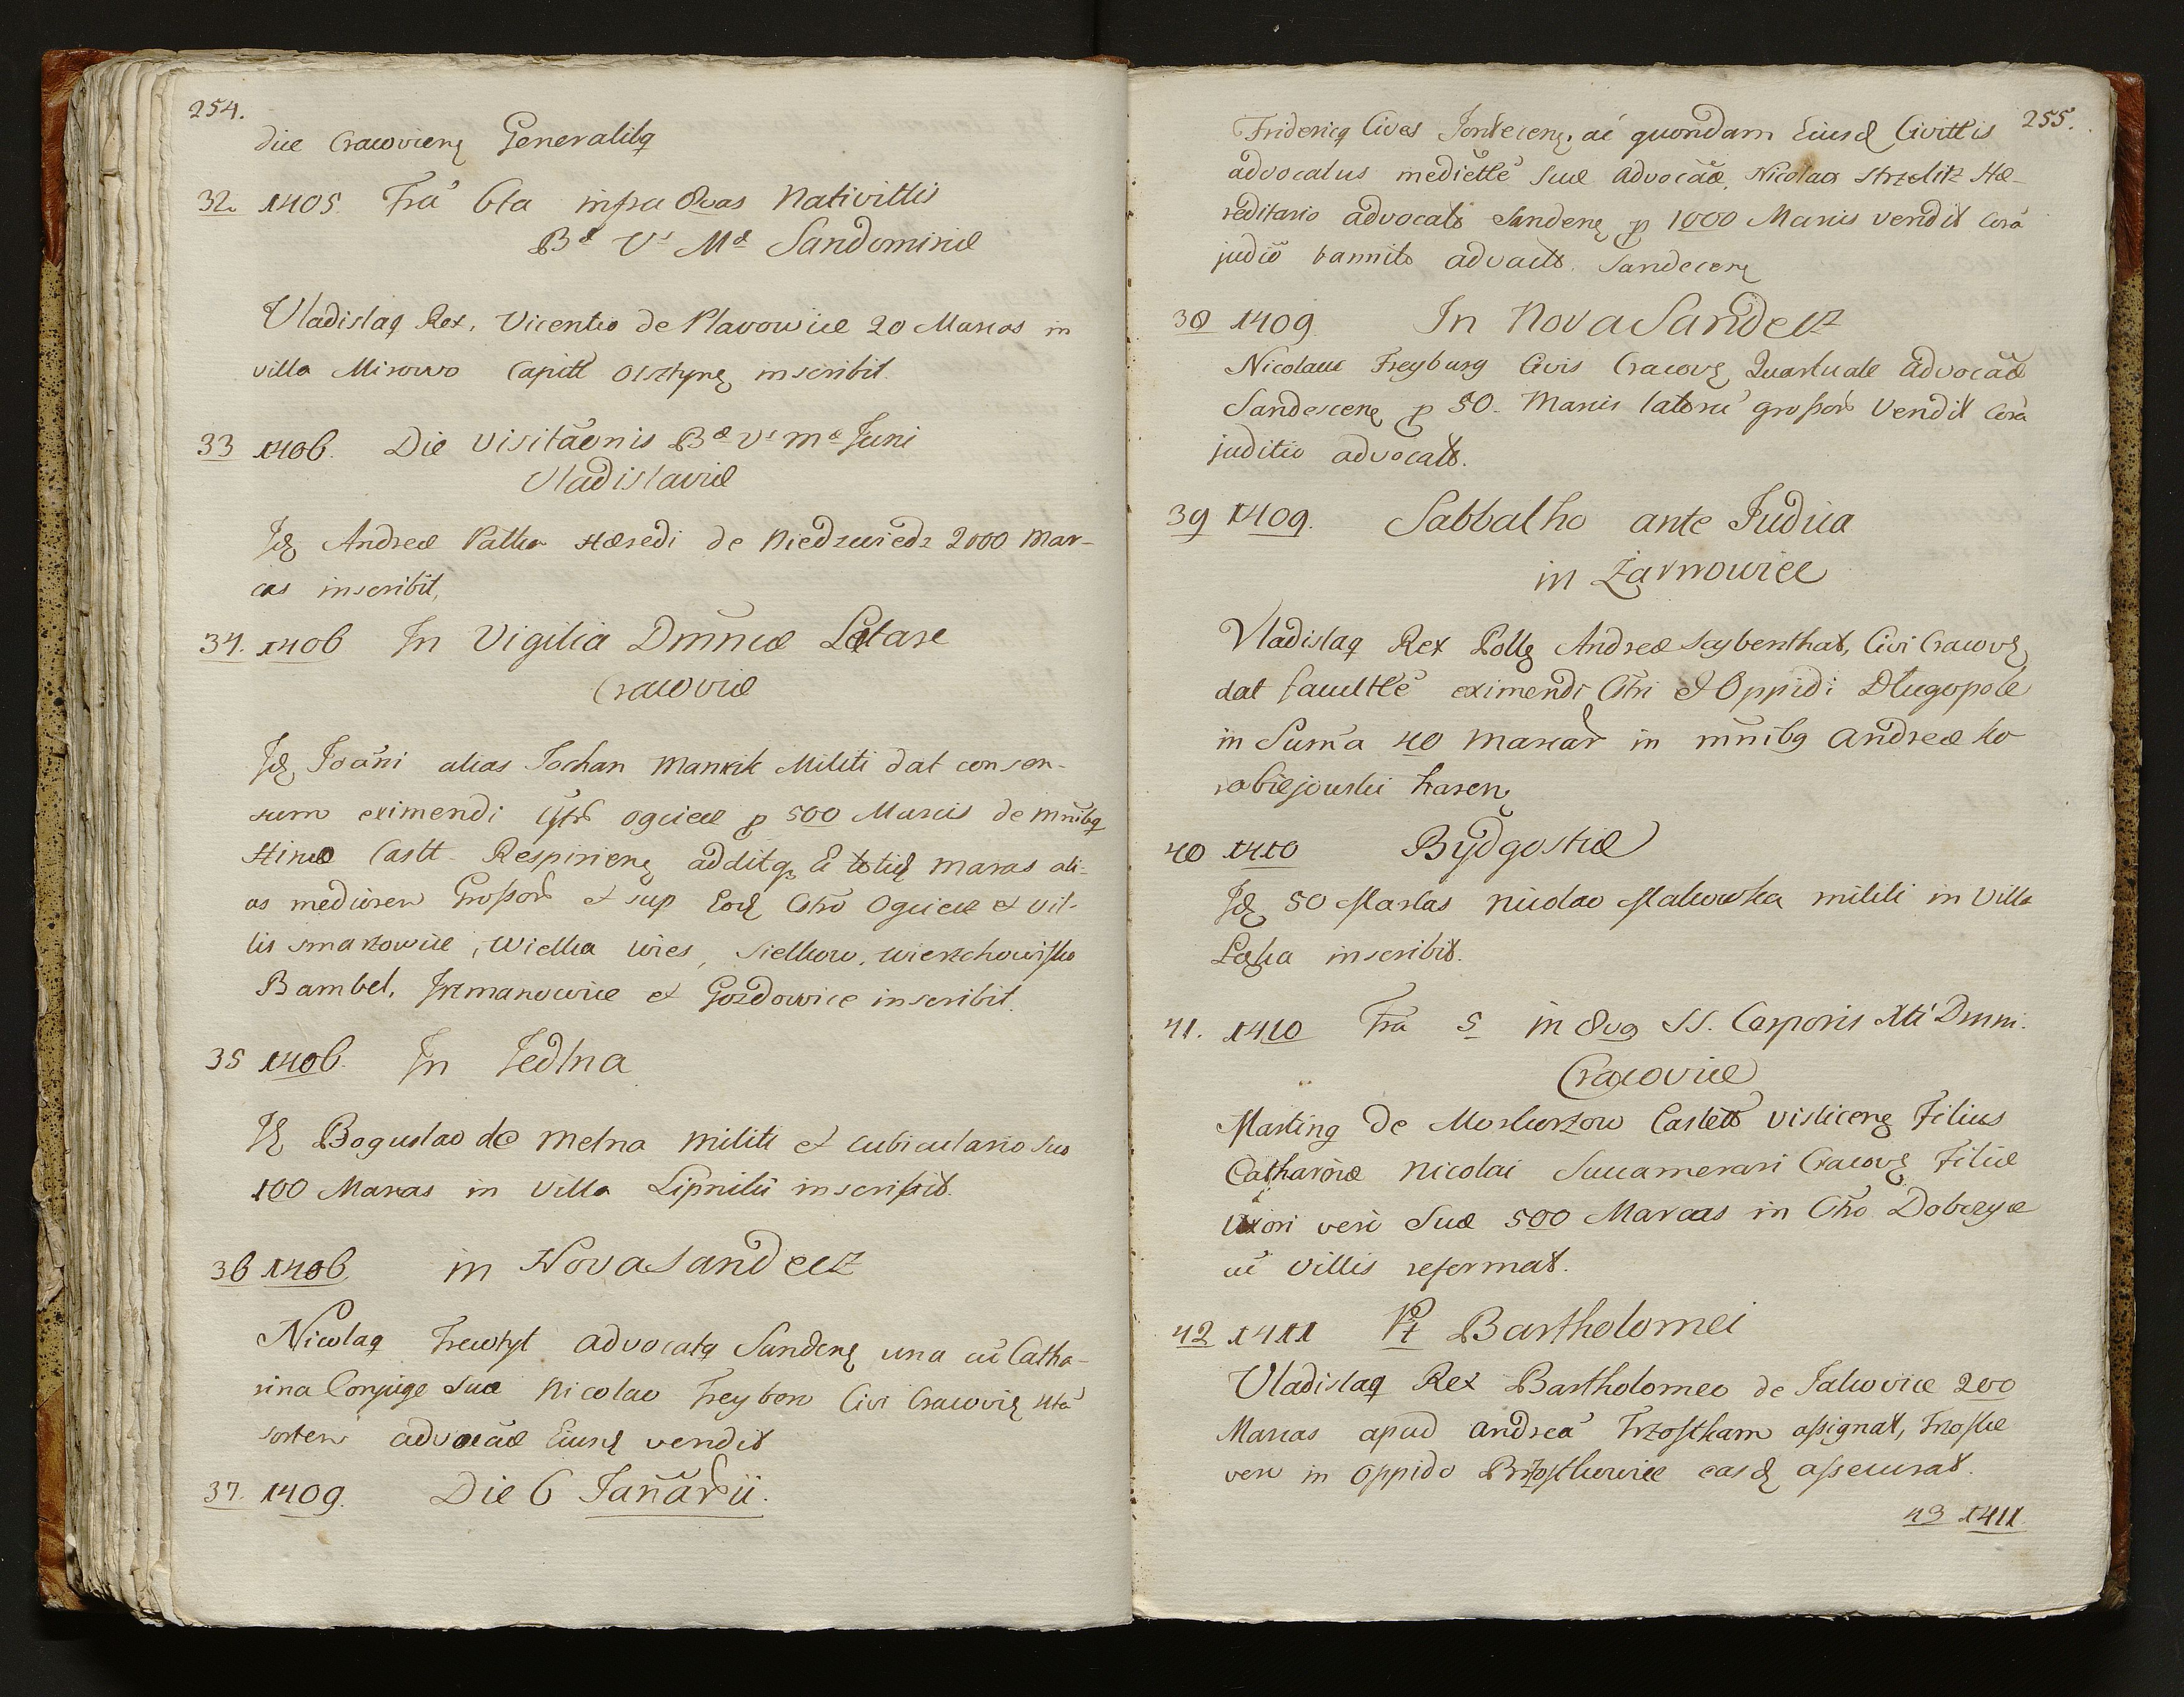 254.
diie Cracovienꝫ Generalitq
32. 1405. Fra 6ta infra 8vas Nativittis
Bæ Vs Mæ Sandomiriæ
Vladislaq Rex, Vicentio de Plavowice 20 Marcas in
villa Mirowo Capitt Olsztynꝫ inscribit.
33 1406. Die visitãonis Bæ Vs Mæ Juni
Vladislaviæ
Idꝫ Andreæ Patka Hæredi de Niedzwiedz 2000 Mar-
cas inscribit,
34. 1406 In Vigilia Dmnicæ Lætare
Cracoviæ
Idꝫ Joãni alias Jochan Mankik Militi dat consen-
sum eximendi Ogrciecz p 500 Marcis de mñibq
Castt. Respirienꝫ additqꝫ totidꝫ marcas ali-
as mediorem Grossor et sup Eodꝫ Cstro Ogrciecz et vil-
lis Smarzowice, Wielka wies, Sielkow, Wierzchowisko
Bambel, Jrzmanowice et Gozdowice inscribit.
35 1406. In Jedlna
Idꝫ Boguslao de Melna Militi et cubiculario suo
100 Marcas in Villa Lipniki inscribit.
36 1406. in Nova Sandecz
Nicolaq Trewtyl advocatq Sandenꝫ una cũ Catha-
rina Conjuge suæ Nicolao Freyberr Civi Cracoviꝫ
sortem advocãæ Eiusdꝫ vendit
37. 1409. Die 6 Januarii.
255.
Fridericq Cives Sandecenꝫ. ac quondam Eiusd Civittis
advocatus mediettẽ suæ advocãæ, Nicolao Strzelitz Hæ-
reditario advocato Sandenꝫ p 1000 Marcis vendit Corã
judiõ bannito advacto. Sandecenꝫ
38 1409. In Nova Sandecz
Nicolaus Freyburg Civis Cracovꝫ Quartuale advocãæ
Sandescenꝫ p 50. Marcis latorũ grossor Vendit Corã
juditio advocato.
39 1409. Sabbatho ante Judica
in Żarnowiec
Vladislaq Rex Pollꝫ Andreæ Seybenthat, Civi Cracovꝫ
dat facultte eximendi Cstri et Oppidi Dlugopole
in Suma 40 marcar in mñibq Andreæ Ko
rabiejowski
40 1410 Bydgostiæ
Idꝫ 50 Marcas Nicolao Makowka militi in Villa
Łęka inscribit.
41. 1410 Fra 5 in 8va SS. Corporis Xti Dmni.
Cracoviæ
Martinq de Moskorzow Castett Vislicenꝫ Filius
Catharinæ Nicolai Succamerari Cracovꝫ Filiæ
Uxori vero Suæ 500 Marcas in Cstro Dobczyce
cũ villis reformat.
42 1411 Pt Bartholomei
Vladislaq Rex Bartholomeo de Jakovice 200
Marcas apud Andreã Trzostkam assignat, Trzoske
vero in Oppido Brzostkowice easdꝫ assecurat.
43 1411.